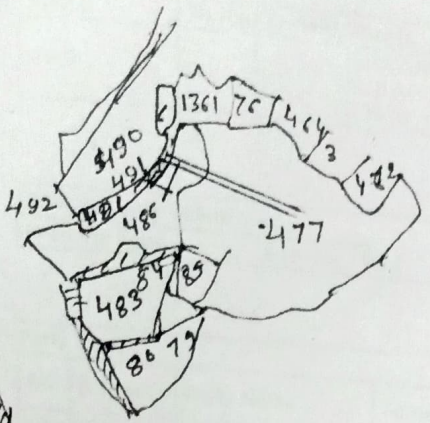 1361 76 464
3
490
491
492
486
477
84 85
483
80 79